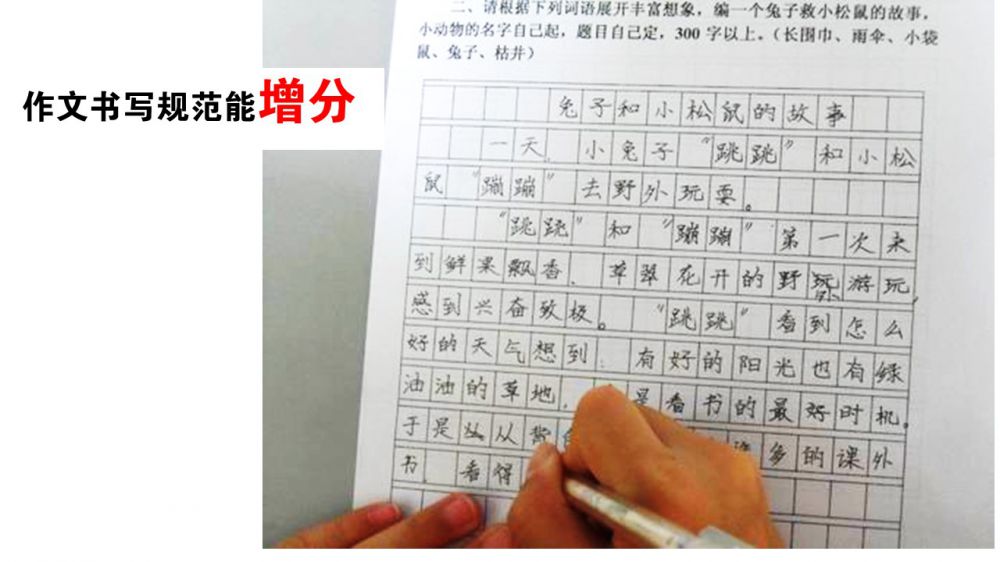 作文书写规范能增分
二、请根据下列词语展开丰富想象，编一个兔子救小松鼠的故事，
小动物的名字自己起，题目自己定，300字以上。（长围巾、雨伞、小袋
鼠、兔子、枯井）
兔子和小松鼠的故事
一天，小兔子“跳跳”和小松
鼠“蹦蹦”去野外玩耍。
“跳跳”和“蹦蹦”第一次来
到鲜果飘香、草翠花开的野外游玩，
感到兴奋致极。“跳跳”看到怎么
好的天气想到：有好的阳光也有绿
油油的草地，是看书的最好时机。
于是从背多的课外
书，看得